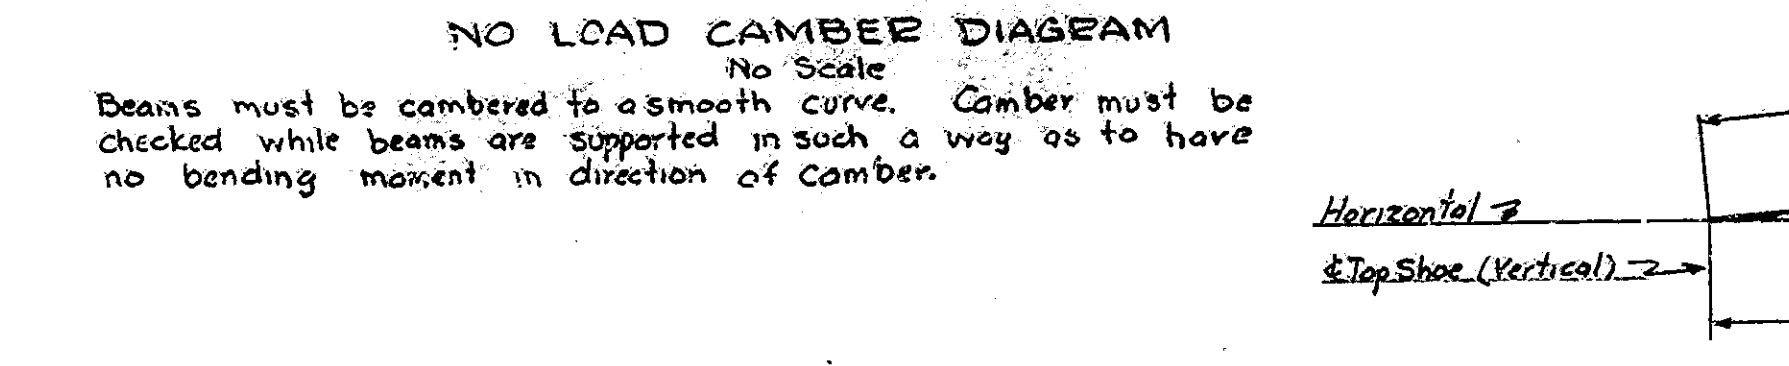 NO LOAD CAMBER DIAGRAM
No Scale
Beams must be cambered to a smooth curve. Camber must be
checked while beams are supported in such a way as to have
no bending moment in direction of camber.
Horizontal
℄ Top Shoe (Vertical)